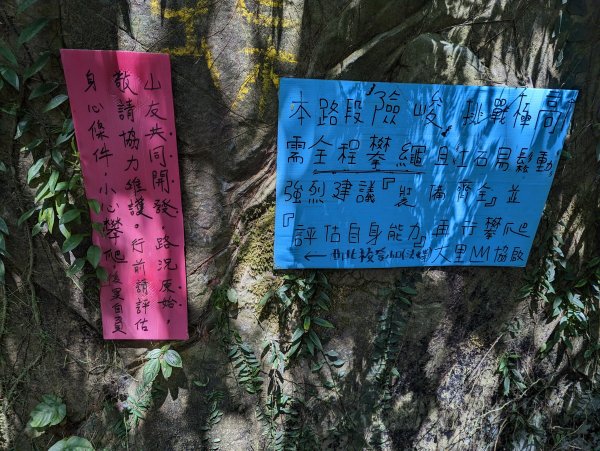 山友共同開發,路況原始,
敬請協力維護。行前請評估
身心條件,小心攀爬,後果自負
本路段險峻,挑戰極高
需全程攀繩,且江石易鬆動,
強烈建議『裝備齊全』並
『評估自身能力』再行攀爬
大里 協啟